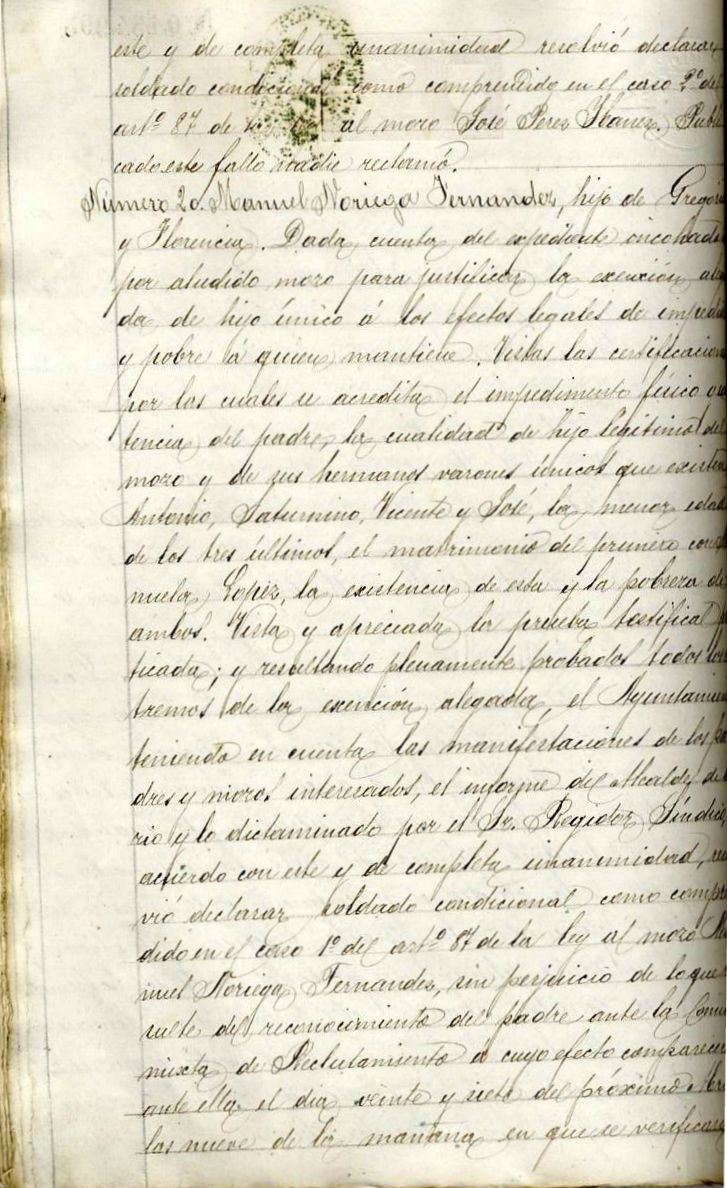 este y de completa unanimidad resolvió declarar
soldado condicional como comprendido en el caso 2º del
artº 87 de la ley al mozo José Perez Ibañez. Publi
cado este fallo nadie reclamó.
Número 20. Manuel Noriega Fernandez, hijo de Gregorio
y Florencia. Dada cuenta del expediente incohado
por aludido mozo para justificar la exención alega
da de hijo único á los efectos legales de impedido
y pobre á quien mantiene. Vistas las certificaciones
por las cuales se acredita el impedimento físico
tencia del padre, la cualidad de hijo legítimo del
mozo y de sus hermanos varones únicos que existen
Antonio, Saturnino, Vicente y José, la menor edad
de los tres últimos, el matrimonio del primero con
nuela Lopez, la existencia de esta y la pobreza de
ambos. Vista y apreciada la prueba testifical
ticada; y resultando plenamente probados todos los
tremos de la exención alegada, el Ayuntamien
teniendo en cuenta las manifestaciones de los pa
dres y mozos interesados, el informe del Alcalde de
rio y lo dictaminado por el Sr. Regidor Síndico,
acuerdo con este y de completa unanimidad, resol
vió declarar soldado condicional como compren
dido en el caso 1º del artº 87 de la ley al mozo Ma
nuel Noriega Fernandez, sin perjuicio de lo que
sulte del reconocimiento del padre ante la Comi
mixta de Reclutamiento á cuyo efecto comparecerá
ante ella el dia veinte y siete del próximo
las nueve de la mañana en que se verificará